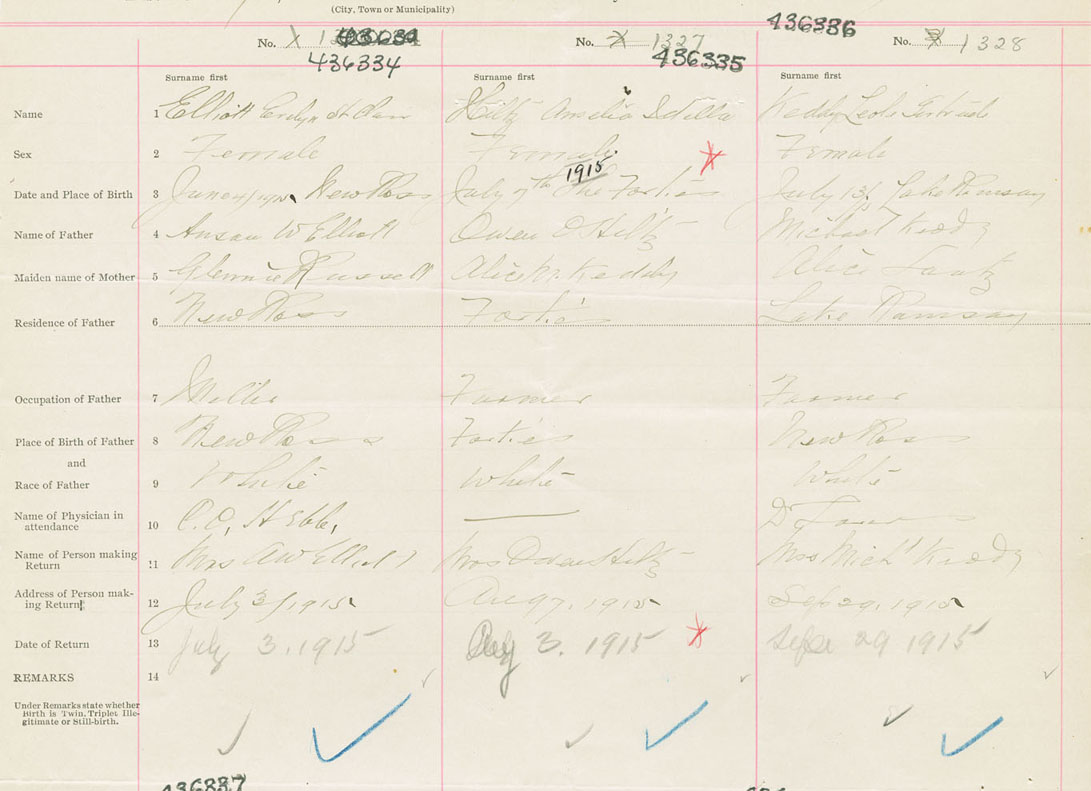 (City, Town or Municipality)
436336
No. X 436334
No. X 1327 436335
No. 1328
Surname first Surname first Surname first
Name 1 Elliott Evelyn Hiltz Amelia Idella Keddy Leola Gertrude
Sex 2 Female Female. Female
1915
Date and Place of Birth 3 June 1915 New Ross July 7th The Forties July 13/15 Lake Ramsay
Name of Father 4 Anson W Elliott Owen E Hiltz Michael Keddy
Maiden name of Mother 5 Glennie Russell Alice M. Keddy Alice Lantz
Residence of Father 6 New Ross Forties Lake Ramsay
Occupation of Father 7 Farmer Farmer
Place of Birth of Father 8 New Ross Forties New Ross
and
Race of Father 9 White White White
Name of Physician in
attendance 10 C.O. Hebb, — Dr
Name of Person making
Return 11 Mrs A W Elliott Mrs Owen Hiltz Mrs Mich'l Keddy
Address of Person mak-
ing Return 12 July 3/1915 Aug 7, 1915 Sep 29, 1915
Date of Return 13 July 3. 1915 Aug 3. 1915 Sept 29 1915
REMARKS 14
Under Remarks state whether
Birth is Twin, Triplet, Ille-
gitimate or Still-birth.
436337